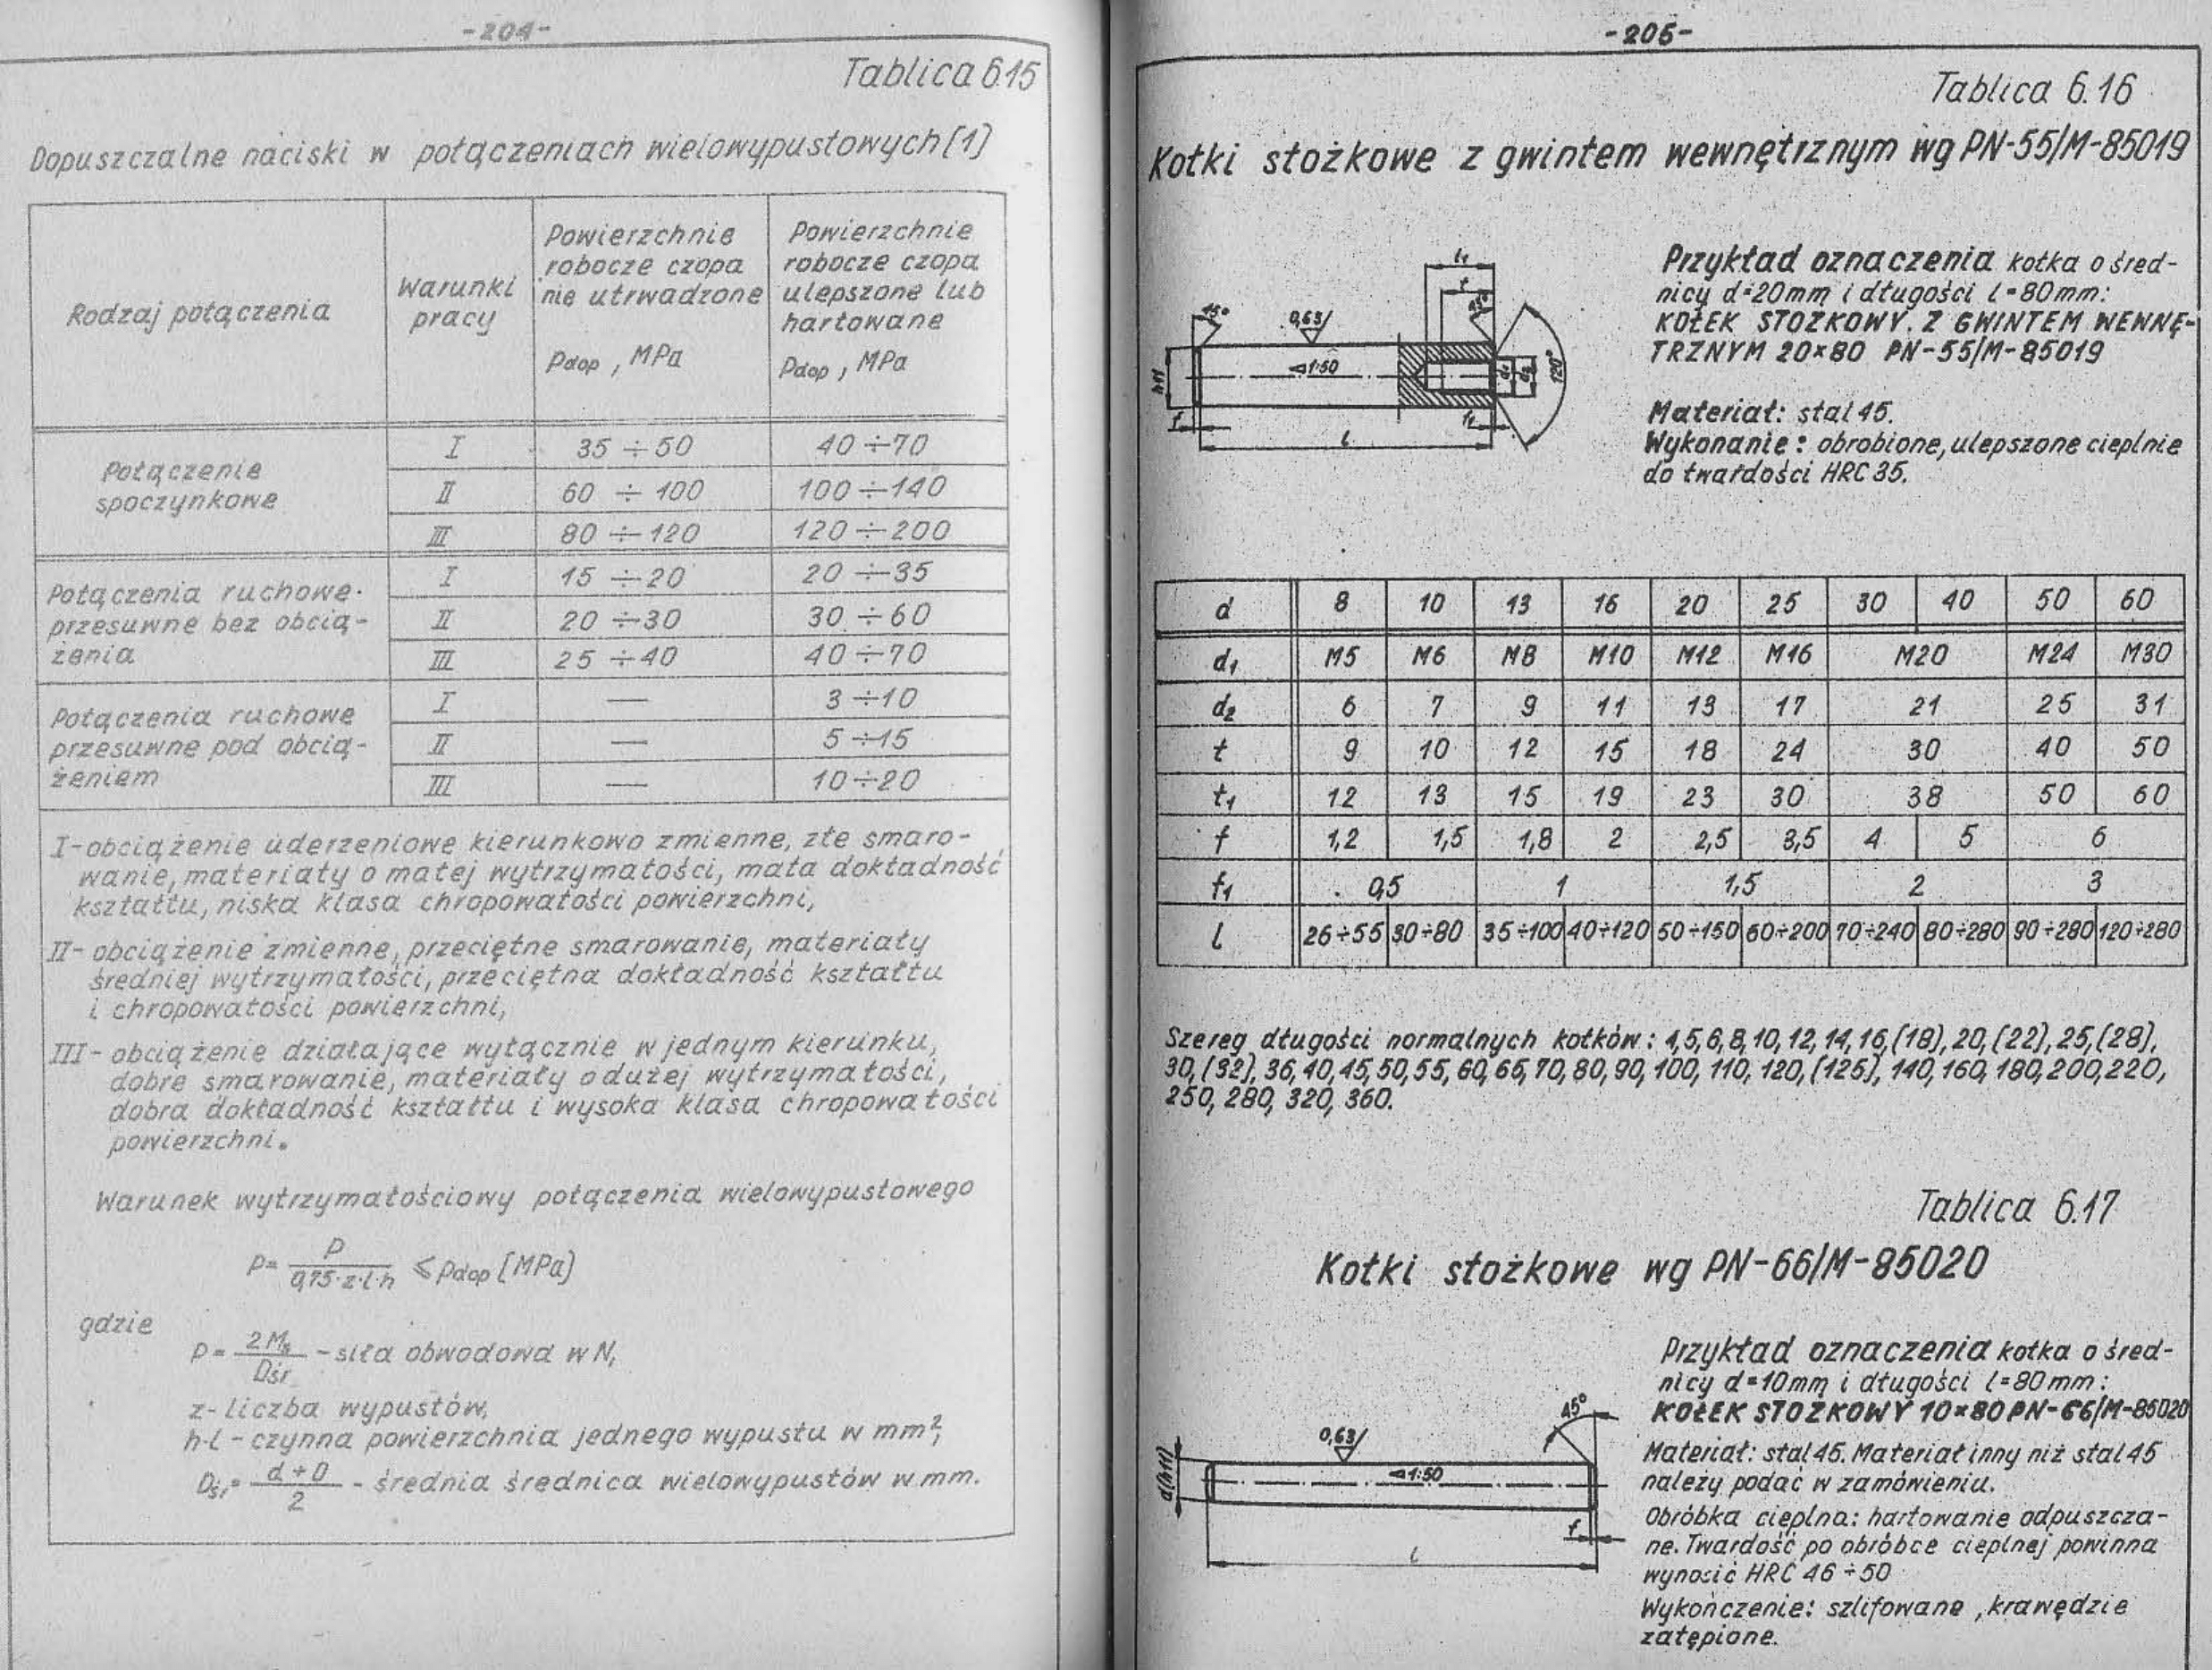 -204-
Tablica 6.15
Dopuszczalne naciski w połączeniach wielowypustowych [1]
Rodzaj połączenia
Warunki
pracy
Powierzchnie
robocze czopa
nie utrwadzone
Pdop , MPa
Powierzchnie
robocze czopa
ulepszone lub
hartowane
Pdop , MPa
Połączenie
spoczynkowe
I 35 ÷ 50 40 ÷ 70
II 60 ÷ 100 100 ÷ 140
III 80 ÷ 120 120 ÷ 200
Połączenia ruchowe
przesuwne bez obcią-
żenia
I 15 ÷ 20 20 ÷ 35
II 20 ÷ 30 30 ÷ 60
III 25 ÷ 40 40 ÷ 70
Połączenia ruchowe
przesuwne pod obcią-
żeniem
I — 3 ÷ 10
II — 5 ÷ 15
III — 10 ÷ 20
I - obciążenie uderzeniowe kierunkowo zmienne, złe smaro-
wanie, materiały o małej wytrzymałości, mała dokładność
kształtu, niska klasa chropowatości powierzchni,
II - obciążenie zmienne, przeciętne smarowanie, materiały
średniej wytrzymałości, przeciętna dokładność kształtu
i chropowatości powierzchni,
III - obciążenie działające wyłącznie w jednym kierunku,
dobre smarowanie, materiały o dużej wytrzymałości,
dobra dokładność kształtu i wysoka klasa chropowatości
powierzchni.
Warunek wytrzymałościowy połączenia wielowypustowego
p = P / 0,75·z·l·h ≤ Pdop [MPa]
gdzie
P = 2Ms / Dśr - siła obwodowa w N,
z - liczba wypustów,
h·l - czynna powierzchnia jednego wypustu w mm²,
Dśr = d + D / 2 - średnia średnica wielowypustów w mm.
-205-
Tablica 6.16
Kołki stożkowe z gwintem wewnętrznym wg PN-55/M-85019
t1
t
15°
0,63/
45°
h11
1:50
d1
d2
120°
f
f1
l
Przykład oznaczenia kołka o śred-
nicy d=20mm i długości l=80mm:
KOŁEK STOŻKOWY Z GWINTEM WEWNĘ-
TRZNYM 20×80 PN-55/M-85019
Materiał: stal 45.
Wykonanie: obrobione, ulepszone cieplnie
do twardości HRC 35.
d 8 10 13 16 20 25 30 40 50 60
d1 M5 M6 M8 M10 M12 M16 M20 M24 M30
d2 6 7 9 11 13 17 21 25 31
t 9 10 12 15 18 24 30 40 50
t1 12 13 15 19 23 30 38 50 60
f 1,2 1,5 1,8 2 2,5 3,5 4 5 6
f1 0,5 1 1,5 2 3
l 26÷55 30÷80 35÷100 40÷120 50÷150 60÷200 70÷240 80÷280 90÷280 120÷280
Szereg długości normalnych kołków: 4,5,6,8,10,12,14,16,(18),20,(22),25,(28),
30,(32),36,40,45,50,55,60,65,70,80,90,100,110,120,(125),140,160,180,200,220,
250,280,320,360.
Tablica 6.17
Kołki stożkowe wg PN-66/M-85020
Przykład oznaczenia kołka o śred-
nicy d=10mm i długości l=80mm:
KOŁEK STOŻKOWY 10×80 PN-66/M-85020
Materiał: stal 45. Materiał inny niż stal 45
należy podać w zamówieniu.
Obróbka cieplna: hartowanie odpuszcza-
ne. Twardość po obróbce cieplnej powinna
wynosić HRC 46÷50
Wykończenie: szlifowane, krawędzie
zatępione.
45°
0,63/
d(h11)
1:50
f
l